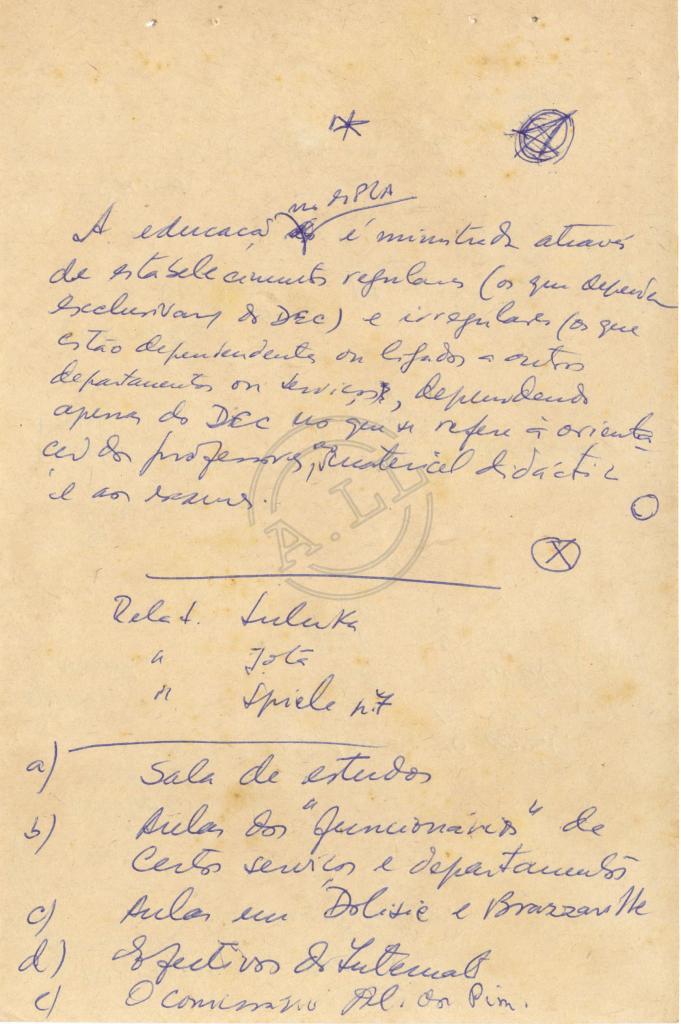 no MPLA
A educação é ministrada através
de estabelecimentos regulares (os que dependem
exclusivam. do DEC) e irregulares (os que
estão dependendentes ou ligados a outros
departamentos ou serviços, dependendo
apenas do DEC no que se refere à orienta-
ção dos professores, material didáctico
e aos exames.
A.LL
X
Relat.
" Jota
" Spiele nº7
a) Sala de estudos
b) Aulas dos "funcionários" de
certos serviços e departamentos
c) Aulas em Dolisie e Brazzaville
d) Efectivos do Internato
e) O comissário